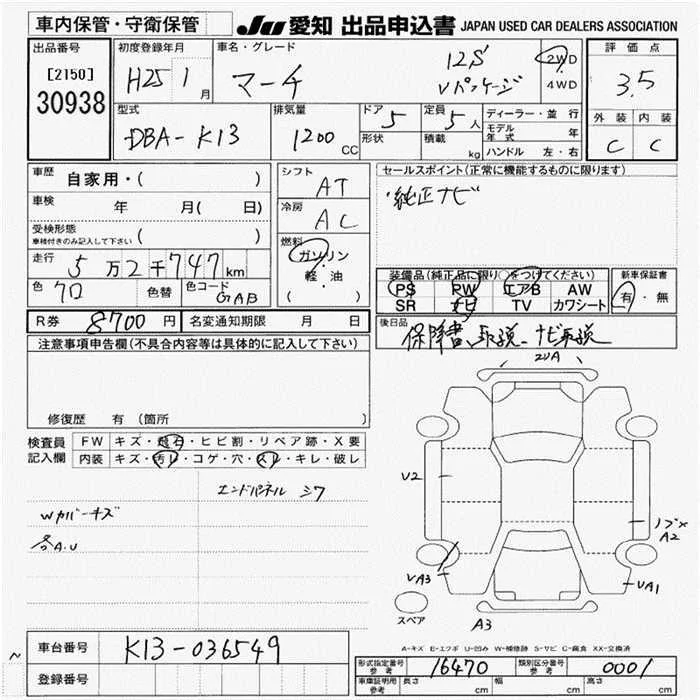 車内保管・守衛保管
JU 愛知 出品申込書 JAPAN USED CAR DEALERS ASSOCIATION
出品番号
[2150]
30938
初度登録年月
H25 1月
車名・グレード
マーチ
12S
Vパッケージ
2WD
4WD
評価点
3.5
外装 内装
C C
型式
DBA-K13
排気量
1200 CC
ドア 5
形状
定員 5人
積載 kg
ディーラー・並行
モデル年式 年
ハンドル 左・右
車歴 自家用・( )
車検 年 月( 日)
受検形態
車検付きのみ記入して下さい ( )
走行 5万2千747km
色 クロ 色替 色コード GAB
シフト AT
冷房 AC
燃料
ガソリン
・
軽・油
( )
セールスポイント(正常に機能するものに限ります)
純正ナビ
装備品(純正品に限り○をつけてください)
PS PW エアB AW
SR ナビ TV カワシート
新車保証書
有・無
R券 8700円 名変通知期限 月 日
後日品
保障書、取説、ナビ取説
注意事項申告欄(不具合内容等は具体的に記入して下さい)
修復歴 有 (箇所 )
検査員記入欄
FW キズ・飛石・ヒビ割・リペア跡・X要
内装 キズ・汚レ・コゲ・穴・スレ・キレ・破レ
エンドパネル シワ
Wカバーキズ
各A.U
2UA
V2
ノブ×
A2
VA3
UA1
A3
スペア
A-キズ E-エクボ U-凹み W-補修跡 S-サビ C-腐食 XX-交換済
車台番号 K13-036549
登録番号
形式指定番号 参考 16470
類別区分番号 参考 0001
車庫証明用 参考 長さ cm 幅 cm 高さ cm
~